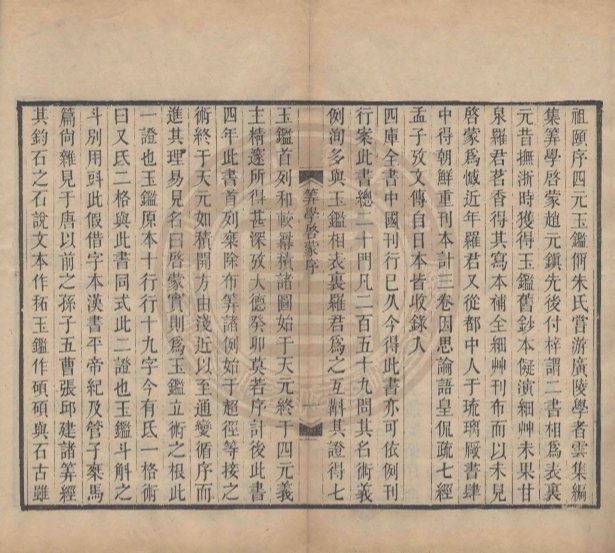 祖頤序四元玉鑑偁朱氏嘗游廣陵學者雲集編
集筭學啓蒙趙元鎭先後付梓謂二書相爲表裏
元昔撫浙時獲得玉鑑舊鈔本儗演細艸未果甘
泉羅君茗香得其寫本補全細艸刊布而以未見
啓蒙爲憾近年羅君又從都中人于琉璃厰書肆
中得朝鮮重刊本計三卷因思論語皇侃疏七經
孟子攷文傳自日本皆收錄入
四庫全書中國刊行已久今得此書亦可依例刊
行案此書總二十門凡二百五十九問其名術義
例洵多與玉鑑相表裏羅君爲之互斠其證得七
筭學啓蒙序
玉鑑首列和較冪積諸圖始于天元終于四元義
主精邃所得甚深攷大德癸卯莫若序計後此書
四年此書首列乘除布筭諸例始于超徑等接之
術終于天元如積開方由淺近以至通變循序而
進其理易見名曰啓蒙實則爲玉鑑立術之根此
一證也玉鑑原本十行行十九字今有氐一格術
曰又氐二格與此書同式此二證也玉鑑斗斛之
斗別用㪷此假借字本漢書平帝紀及管子乘馬
篇尙雜見于唐以前之孫子五曹張邱建諸筭經
其鈞石之石說文本作䄷玉鑑作碩碩與石古雖